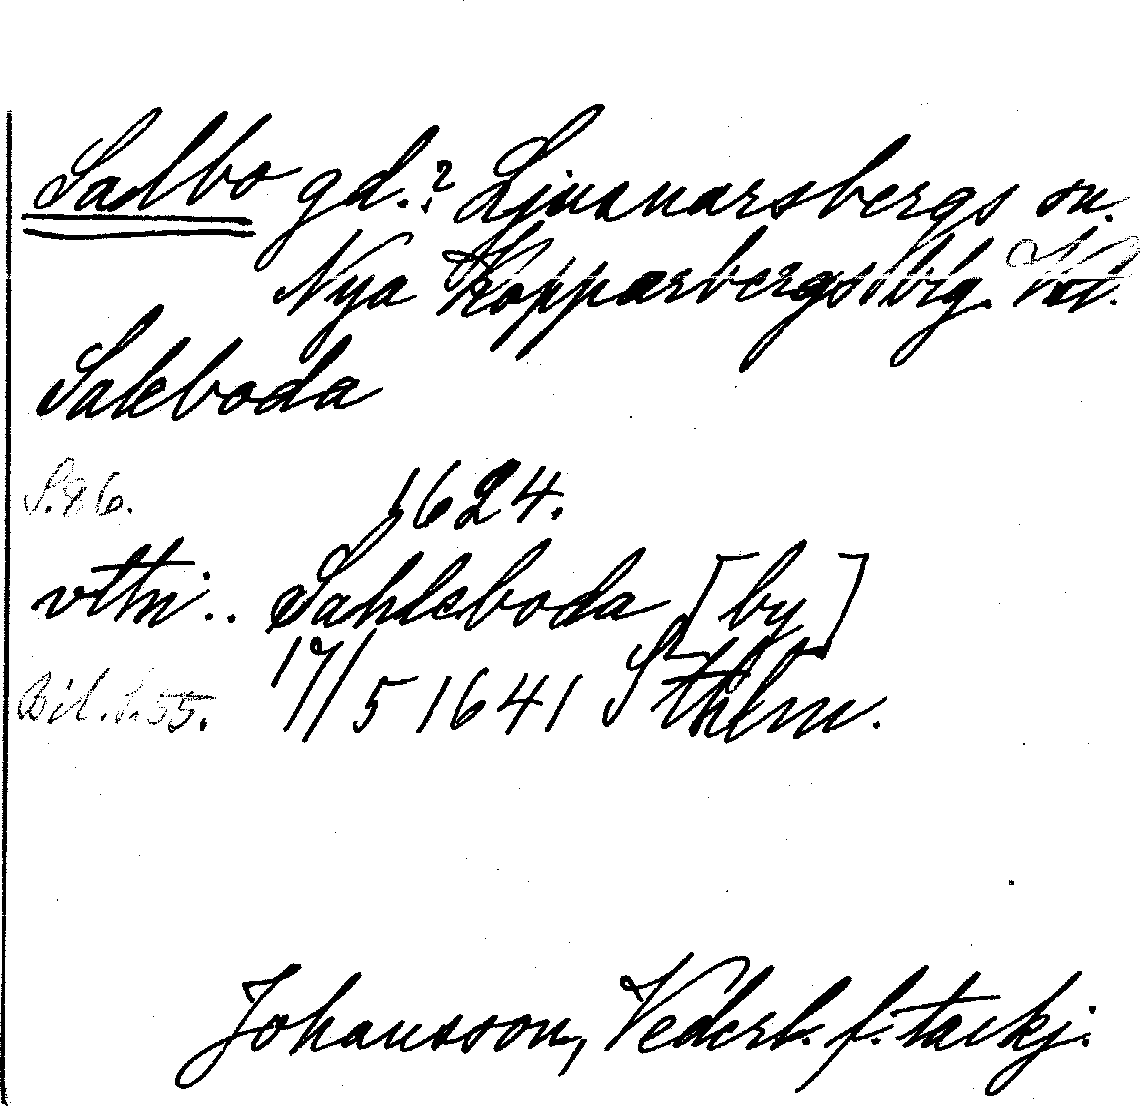 Salbo gd.? Ljusnarsbergs sn.
Nya Kopparbergs blg.
Saleboda
S. 86. 1624.
vttn:.. Sahleboda [by]
Bil. s. 55. 17/5 1641 Sthlm.
Johansson, Vederl. f. tackj.